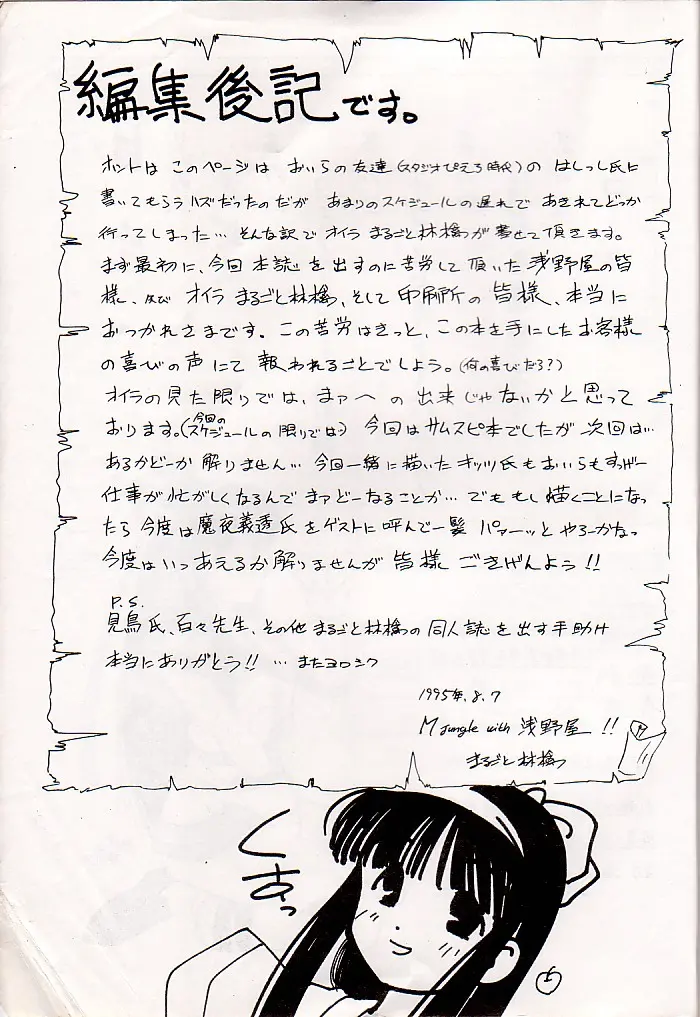 編集後記です。
ホントは このページは おいらの友達(スタジオぴえろ時代)の はしっし氏に
書いてもらうハズだったのだが あまりのスケジュールの遅れで あきれてどっか
行ってしまった… そんな訳で オイラ まるごと林檎が書せて頂きます。
まず最初に、今回 本誌を出すのに苦労して頂いた 浅野屋の皆
様、及び オイラ まるごと林檎、そして 印刷所の 皆様、本当に
おつかれさまです。この苦労はきっと、この本を手にしたお客様
の喜びの声にて 報われることでしょう。(何の喜びだろ?)
オイラの見た限りでは、まァへの出来じゃないかと思って
おります。(今回のスケジュールの限りでは) 今回はサムスピ本でしたが 次回は…
あるかどーか解りません… 今回一緒に描いたオッツ氏もおいらもすっげー
仕事が忙がしくなるんで まァどーなることか… でも もし描くことになっ
たら 今度は魔夜義透氏をゲストに呼んで一髪 パァーッと やろーかなっ
今度はいつあえるか解りませんが 皆様 ごきげんよう!!
P.S.
見鳥氏、百々先生、その他 まるごと林檎の 同人誌を出す手助け
本当にありがとう!! …またヨロシク
1995年.8.7
M Jungle with 浅野屋 !!
まるごと林檎